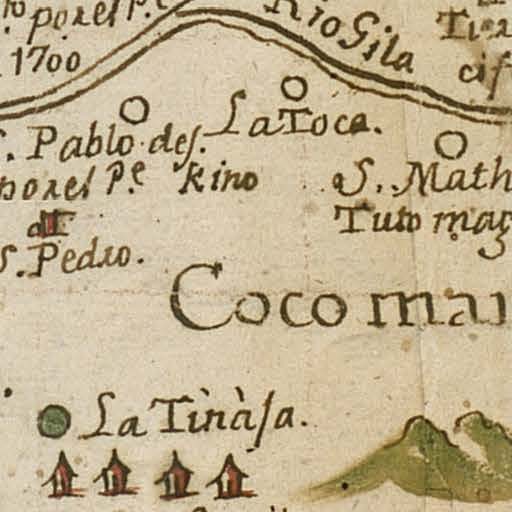 por el P.e
1700
Rio Gila
La Toca.
S. Pablo. des.
por el P.e Kino
S. Math
Tuto mag
S. Pedro.
Coco mar
La Tinàja.